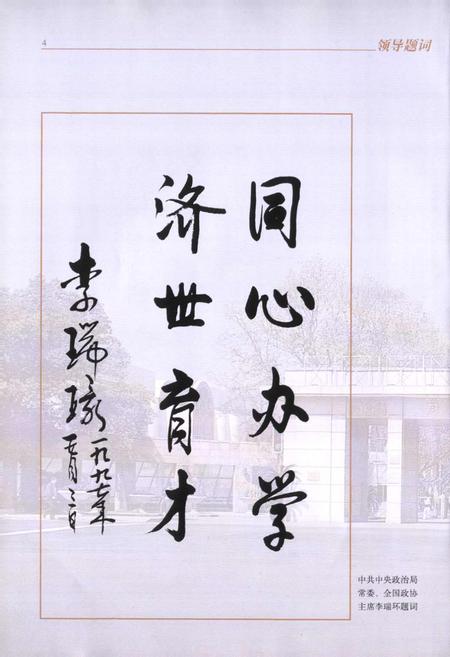 4
领导题词
同心办学
济世育才
李瑞环
一九九七年
五月三日
中共中央政治局
常委、全国政协
主席李瑞环题词